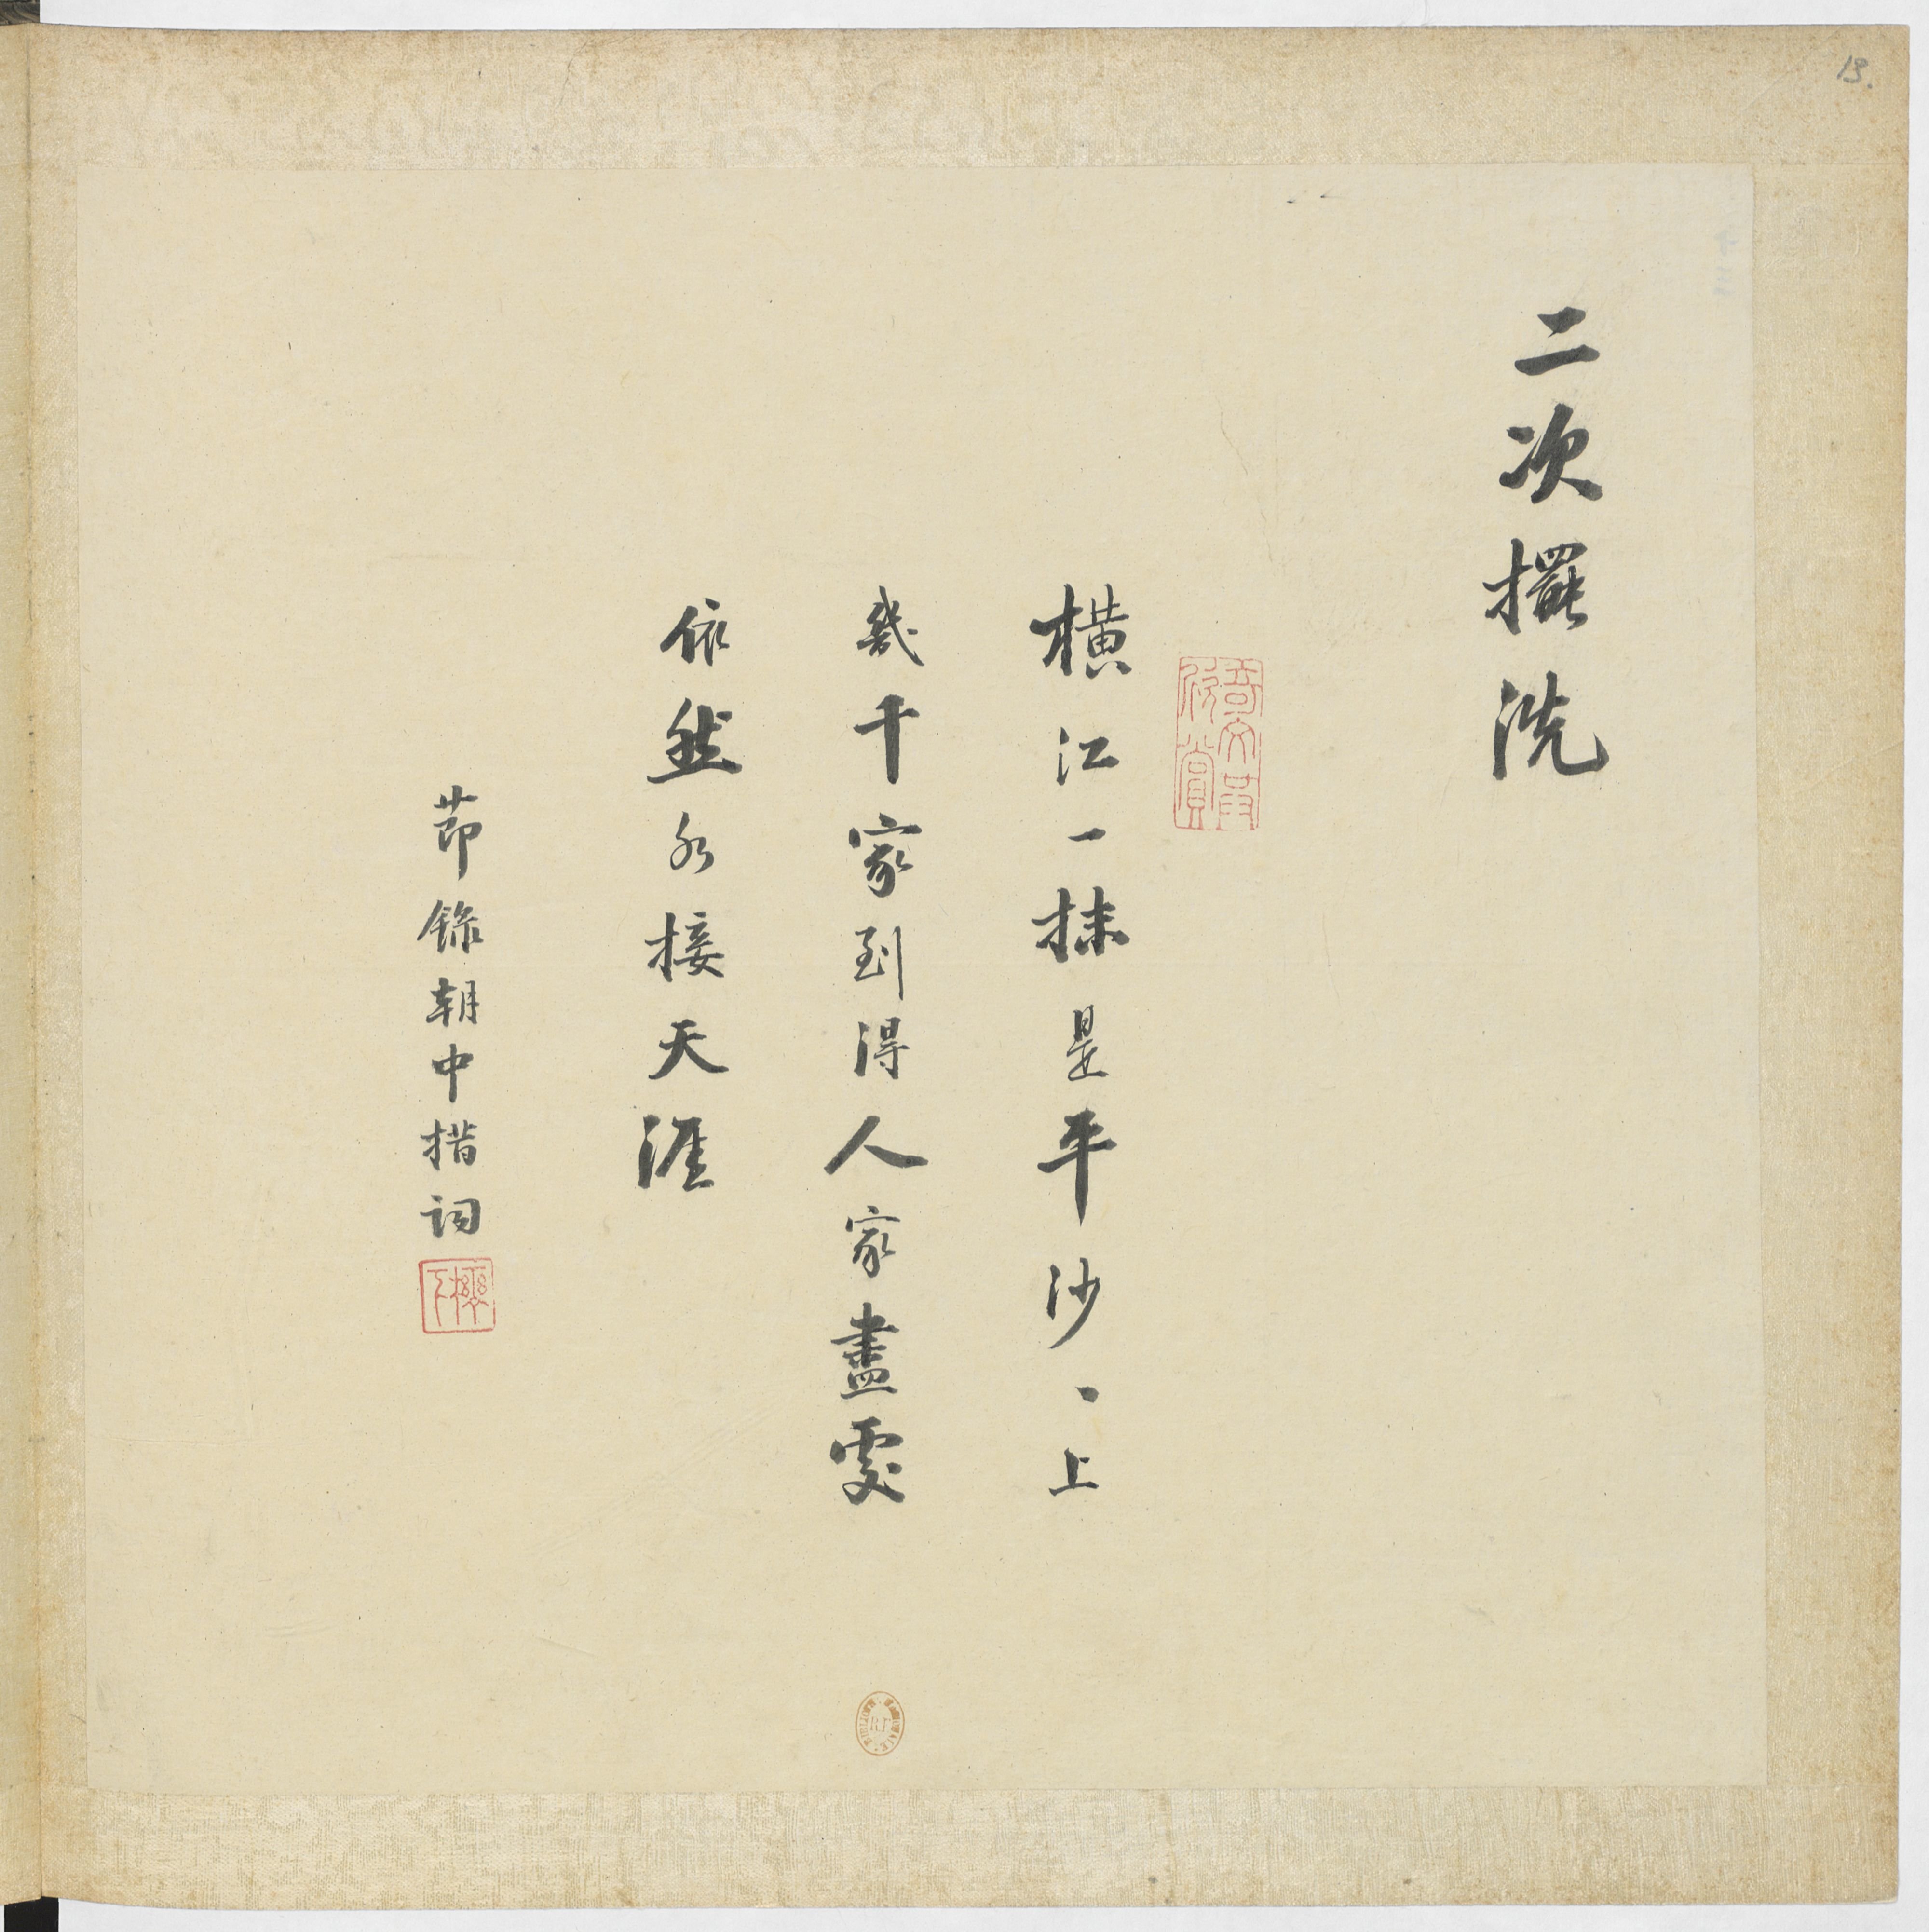 二次擺洗
橫江一抹是平沙、上
幾千家到得人家盡處
依然水接天涯
莭錄朝中措詞
13.